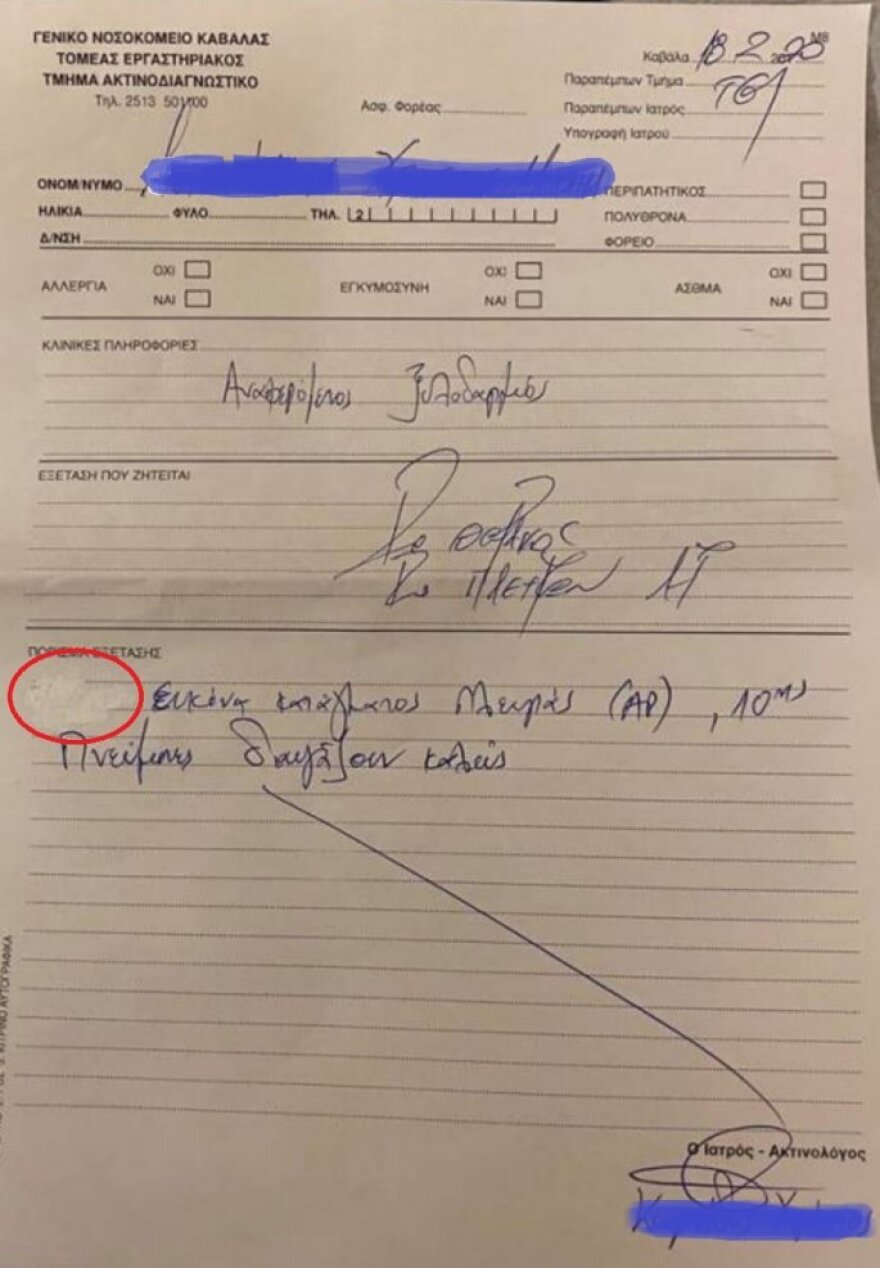 ΓΕΝΙΚΟ ΝΟΣΟΚΟΜΕΙΟ ΚΑΒΑΛΑΣ
ΤΟΜΕΑΣ ΕΡΓΑΣΤΗΡΙΑΚΟΣ
ΤΜΗΜΑ ΑΚΤΙΝΟΔΙΑΓΝΩΣΤΙΚΟ
Τηλ. 2513 501100
Μ8
Καβάλα 18 2 2020
Παραπέμπων Τμήμα ΤΕΠ
Ασφ. Φορέας
Παραπέμπων Ιατρός
Υπογραφή Ιατρού
ΟΝΟΜ/ΝΥΜΟ
ΠΕΡΙΠΑΤΗΤΙΚΟΣ
ΗΛΙΚΙΑ ΦΥΛΟ ΤΗΛ. 2
ΠΟΛΥΘΡΟΝΑ
Δ/ΝΣΗ
ΦΟΡΕΙΟ
ΑΛΛΕΡΓΙΑ ΟΧΙ ΝΑΙ
ΕΓΚΥΜΟΣΥΝΗ ΟΧΙ ΝΑΙ
ΑΣΘΜΑ ΟΧΙ ΝΑΙ
ΚΛΙΝΙΚΕΣ ΠΛΗΡΟΦΟΡΙΕΣ
Αναφερόμενος ξυλοδαρμός
ΕΞΕΤΑΣΗ ΠΟΥ ΖΗΤΕΙΤΑΙ
Ro θώρακος
Ro πλευρών ΑΡ
ΠΟΡΙΣΜΑ ΕΞΕΤΑΣΗΣ
Εικόνα κατάγματος πλευράς (ΑΡ), 10ης
Πνεύμονες διαυγάζουν καλώς
Ο Ιατρός - Ακτινολόγος